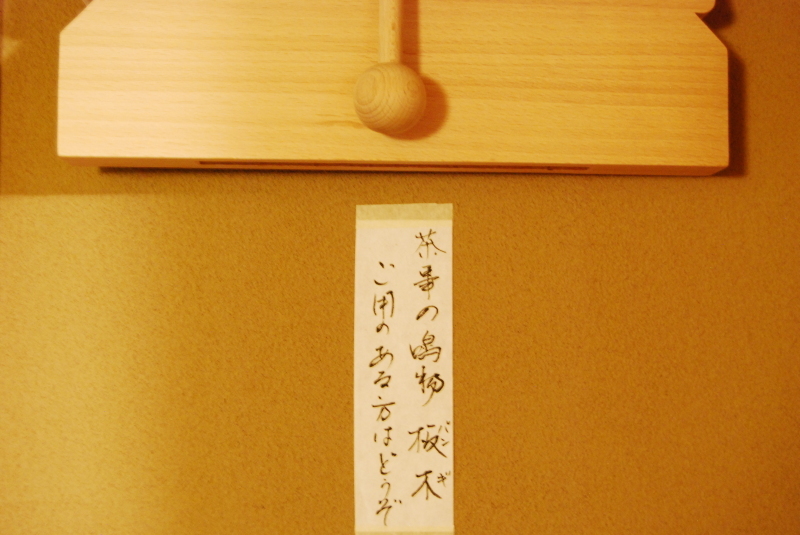 茶事の鳴物 板木 バンギ
ご用のある方はどうぞ